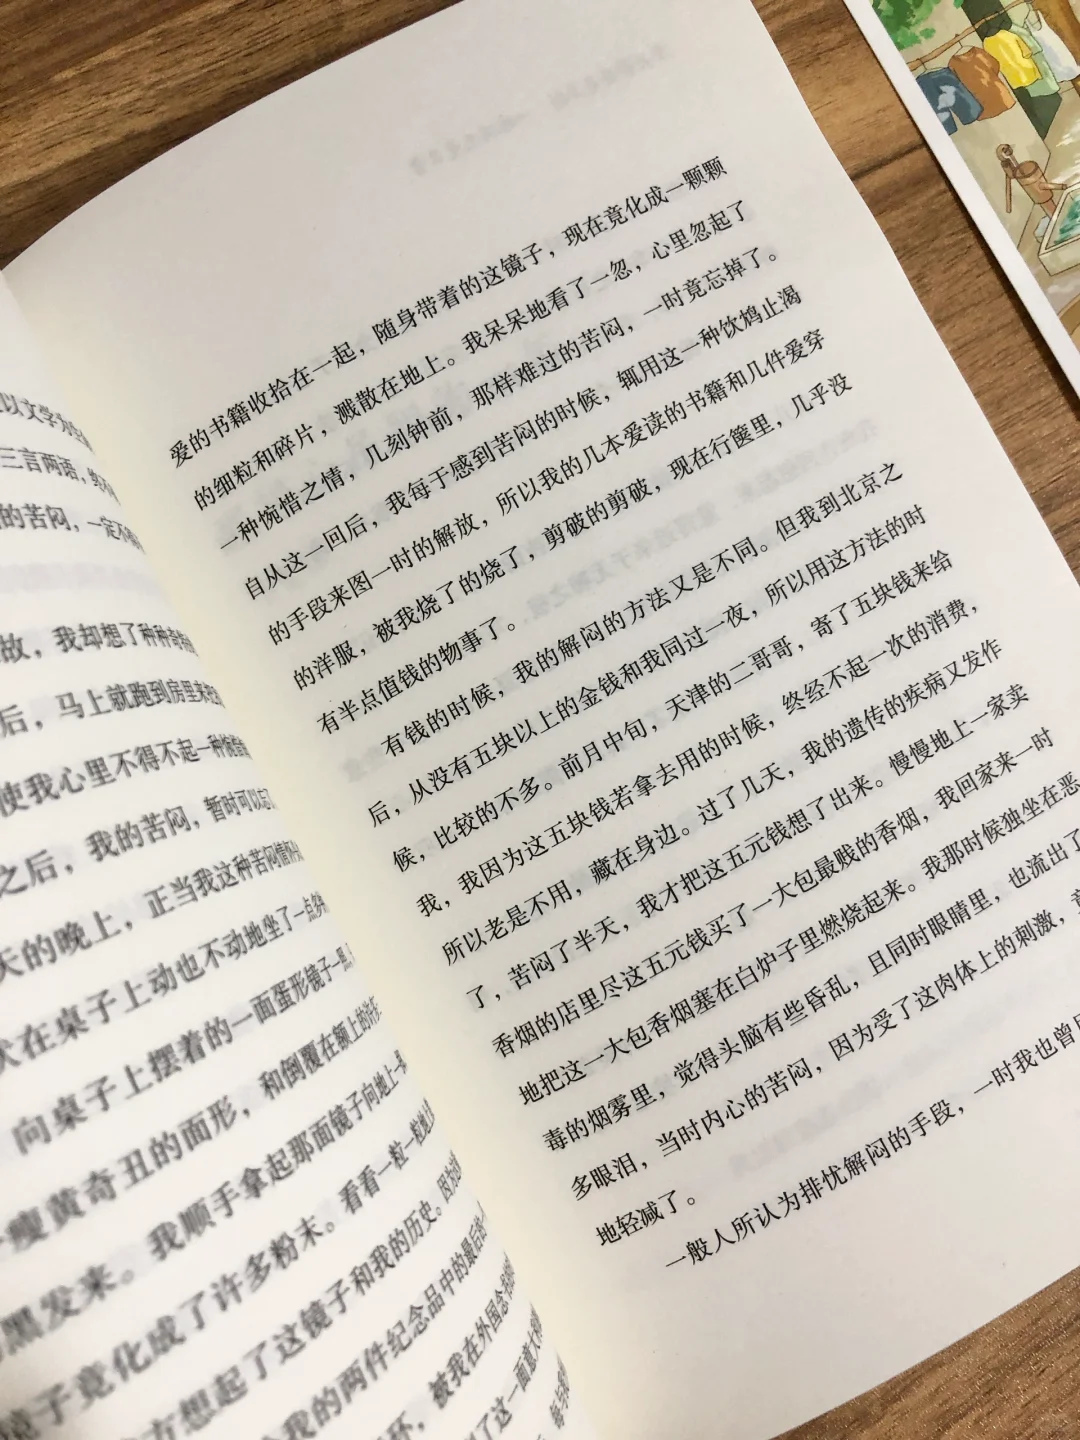 以文学为生
三言两语，
的苦闷，一定不
故，我却想了种种奇
后，马上就跑到房里来
使我心里不得不起一种
之后，我的苦闷，暂时可以忘
天的晚上，正当我这种苦闷情怀
伏在桌子上动也不动地坐了一点多
向桌子上摆着的一面蛋形镜子一照，
瘦黄奇丑的面形，和倒覆在额上的许
黑发来。我顺手拿起那面镜子向地上一
子竟化成了许多粉末。看看一粒一粒地
方想起了这镜子和我的历史。因为
我的两件纪念品中的最后的
环，被我在外国念书
了这一面意大利
爱的书籍收拾在一起，随身带着的这镜子，现在竟化成一颗颗
的细粒和碎片，溅散在地上。我呆呆地看了一忽，心里忽起了
一种惋惜之情，几刻钟前，那样难过的苦闷，一时竟忘掉了。
自从这一回后，我每于感到苦闷的时候，辄用这一种饮鸩止渴
的手段来图一时的解放，所以我的几本爱读的书籍和几件爱穿
的洋服，被我烧了的烧了，剪破的剪破，现在行箧里，几乎没
有半点值钱的物事了。
有钱的时候，我的解闷的方法又是不同。但我到北京之
后，从没有五块以上的金钱和我同过一夜，所以用这方法的时
候，比较的不多。前月中旬，天津的二哥哥，寄了五块钱来给
我，我因为这五块钱若拿去用的时候，终经不起一次的消费，
所以老是不用，藏在身边。过了几天，我的遗传的疾病又发作
了，苦闷了半天，我才把这五元钱想了出来。慢慢地上一家卖
香烟的店里尽这五元钱买了一大包最贱的香烟，我回家来一时
地把这一大包香烟塞在白炉子里燃烧起来。我那时候独坐在恶
毒的烟雾里，觉得头脑有些昏乱，且同时眼睛里，也流出了
多眼泪，当时内心的苦闷，因为受了这肉体上的刺激，竟
地轻减了。
一般人所认为排忧解闷的手段，一时我也曾用